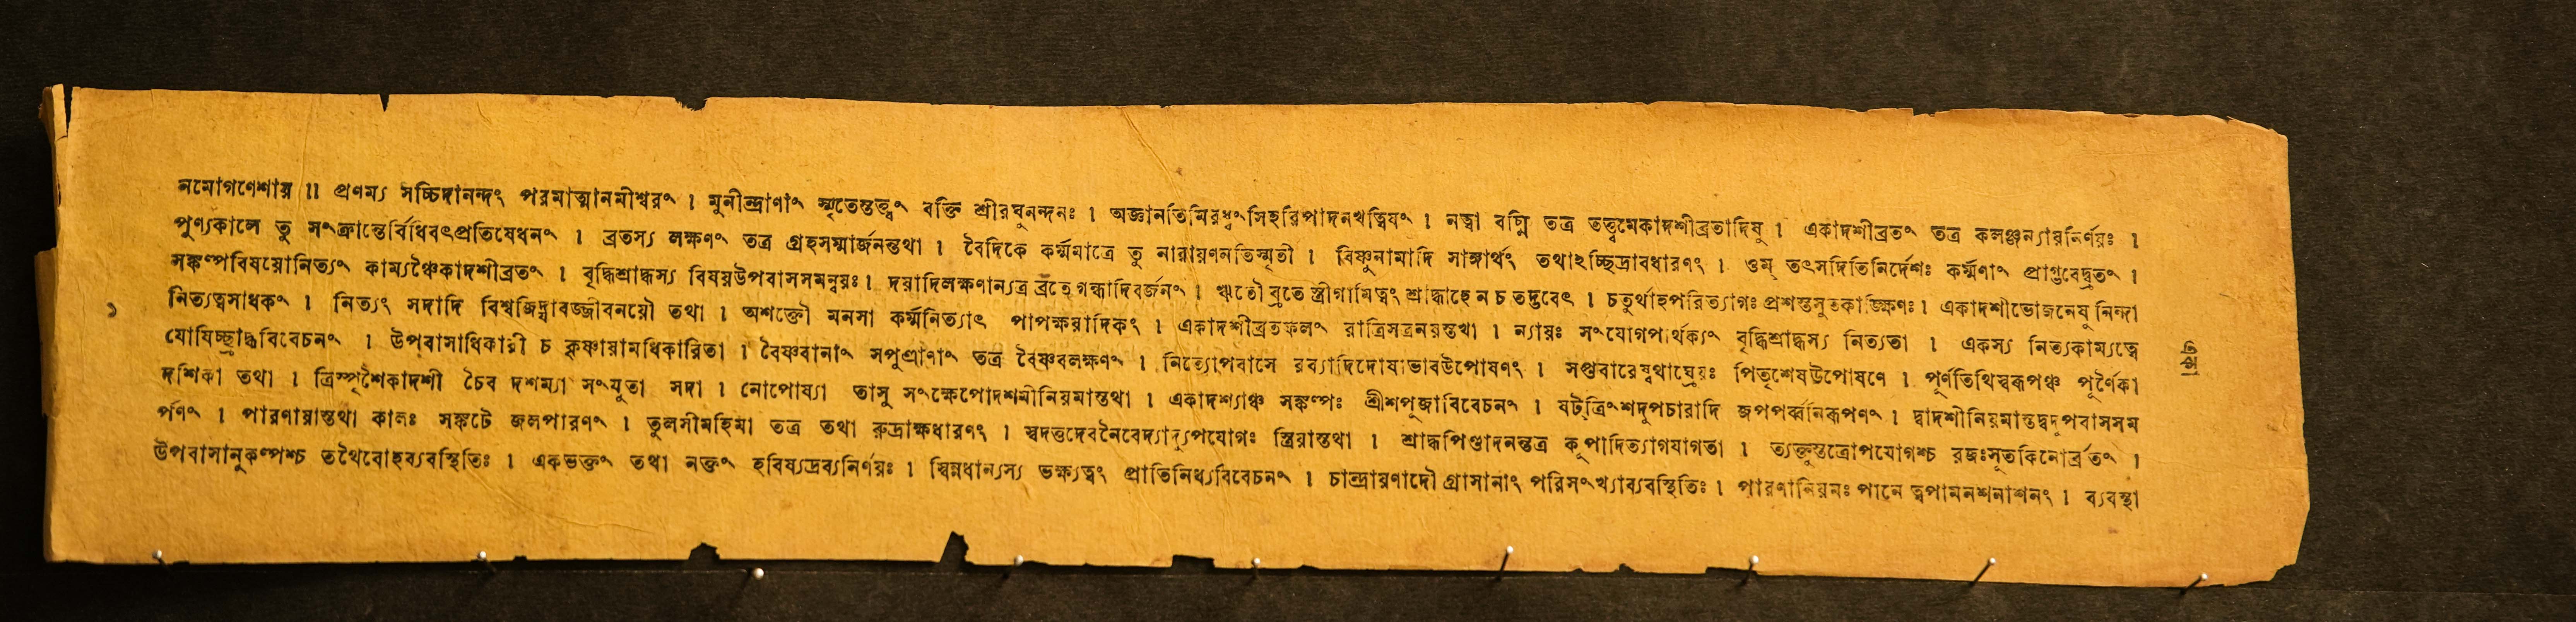 নমোগণেশায় ॥ প্রণম্য সচ্চিদানন্দং পরমাত্মানমীশ্বরং । মুনীন্দ্রাণাং স্মৃতেস্তত্ত্বং বক্তি শ্রীরঘুনন্দনঃ । অজ্ঞানতিমিরধ্বংসিহরিপাদনখত্বিষং । নত্বা বচ্মি তত্র তত্ত্বমেকাদশীব্রতাদিষু । একাদশীব্রতং তত্র কলঞ্জন্যায়নির্ণয়ঃ ।
পুণ্যকালে তু সংক্রান্তের্বিধিবৎপ্রতিষেধনং । ব্রতস্য লক্ষণং তত্র গ্রহসম্মার্জনন্তথা । বৈদিকে কর্ম্মমাত্রে তু নারায়ণনতিস্মৃতী । বিষ্ণুনামাদি সাঙ্গার্থং তথাঽচ্ছিদ্রাবধারণং । ওম্ তৎসদিতিনির্দেশঃ কর্ম্মণাং প্রাগ্ভবেদ্ধ্রুতং ।
সঙ্কল্পবিষয়োনিত্যং কাম্যঞ্চৈকাদশীব্রতং । বৃদ্ধিশ্রাদ্ধস্য বিষয়উপবাসসমন্বয়ঃ । দয়াদিলক্ষণান্যত্র ব্রতে গন্ধাদিবর্জনং । ঋতৌ ব্রতে স্ত্রীগামিত্বং শ্রাদ্ধাহে ন চ তদ্ভবেৎ । চতুর্থাহপরিত্যাগঃ প্রশস্তসুতকাঙ্ক্ষিণঃ । একাদশীভোজনেষু নিন্দা
নিত্যত্বসাধকং । নিত্যং সদাদি বিশ্বজিদ্যাবজ্জীবনয়ৌ তথা । অশক্তৌ মনসা কর্ম্মনিত্যাৎ পাপক্ষয়াদিকং । একাদশীব্রতফলং রাত্রিসত্রনয়ন্তথা । ন্যায়ঃ সংযোগপার্থক্যং বৃদ্ধিশ্রাদ্ধস্য নিত্যতা । একস্য নিত্যকাম্যত্বে
যোষিচ্ছ্রাদ্ধবিবেচনং । উপবাসাধিকারী চ কৃষ্ণায়ামধিকারিতা । বৈষ্ণবানাং সপুত্রাণাং তত্র বৈষ্ণবলক্ষণং । নিত্যোপবাসে রব্যাদিদোষাভাবউপোষণং । সপ্তবারেষ্বথাঘ্রেয়ঃ পিতৃশেষউপোষণে । পূর্ণতিথিস্বরূপঞ্চ পূর্ণৈকা
দশিকা তথা । ত্রিস্পৃশৈকাদশী চৈব দশম্যা সংযুতা সদা । নোপোষ্যা তাসু সংক্ষেপোদশমীনিয়মাস্তথা । একাদশ্যাঞ্চ সঙ্কল্পঃ শ্রীশপূজাবিবেচনং । ষট্ত্রিংশদুপচারাদি জপপর্ব্বনিরূপণং । দ্বাদশীনিয়মাস্তদ্বদুপবাসসম
র্পণং । পারণায়াস্তথা কালঃ সঙ্কটে জলপারণং । তুলসীমহিমা তত্র তথা রুদ্রাক্ষধারণং । স্বদত্তদেবনৈবেদ্যাদ্যুপযোগঃ স্ত্রিয়াস্তথা । শ্রাদ্ধপিণ্ডাদনন্তত্র কূপাদিত্যাগযাগতা । ত্যক্তুস্তত্রোপযোগশ্চ রজঃসূতকিনোর্ব্রতং ।
উপবাসানুকল্পশ্চ তথৈবোহব্যবস্থিতিঃ । একভক্তং তথা নক্তং হবিষ্যদ্রব্যনির্ণয়ঃ । স্বিন্নধান্যস্য ভক্ষ্যত্বং প্রাতিনিধ্যবিবেচনং । চান্দ্রায়ণাদৌ গ্রাসানাং পরিসংখ্যাব্যবস্থিতিঃ । পারণানিয়নঃ পানে ত্বপামনশনাশনং । ব্যবস্থা
১
একা